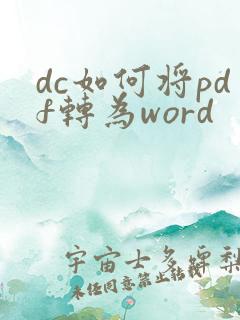 dc如何將pd
f轉為word
宇宙士多啤梨
未经同意禁止转载